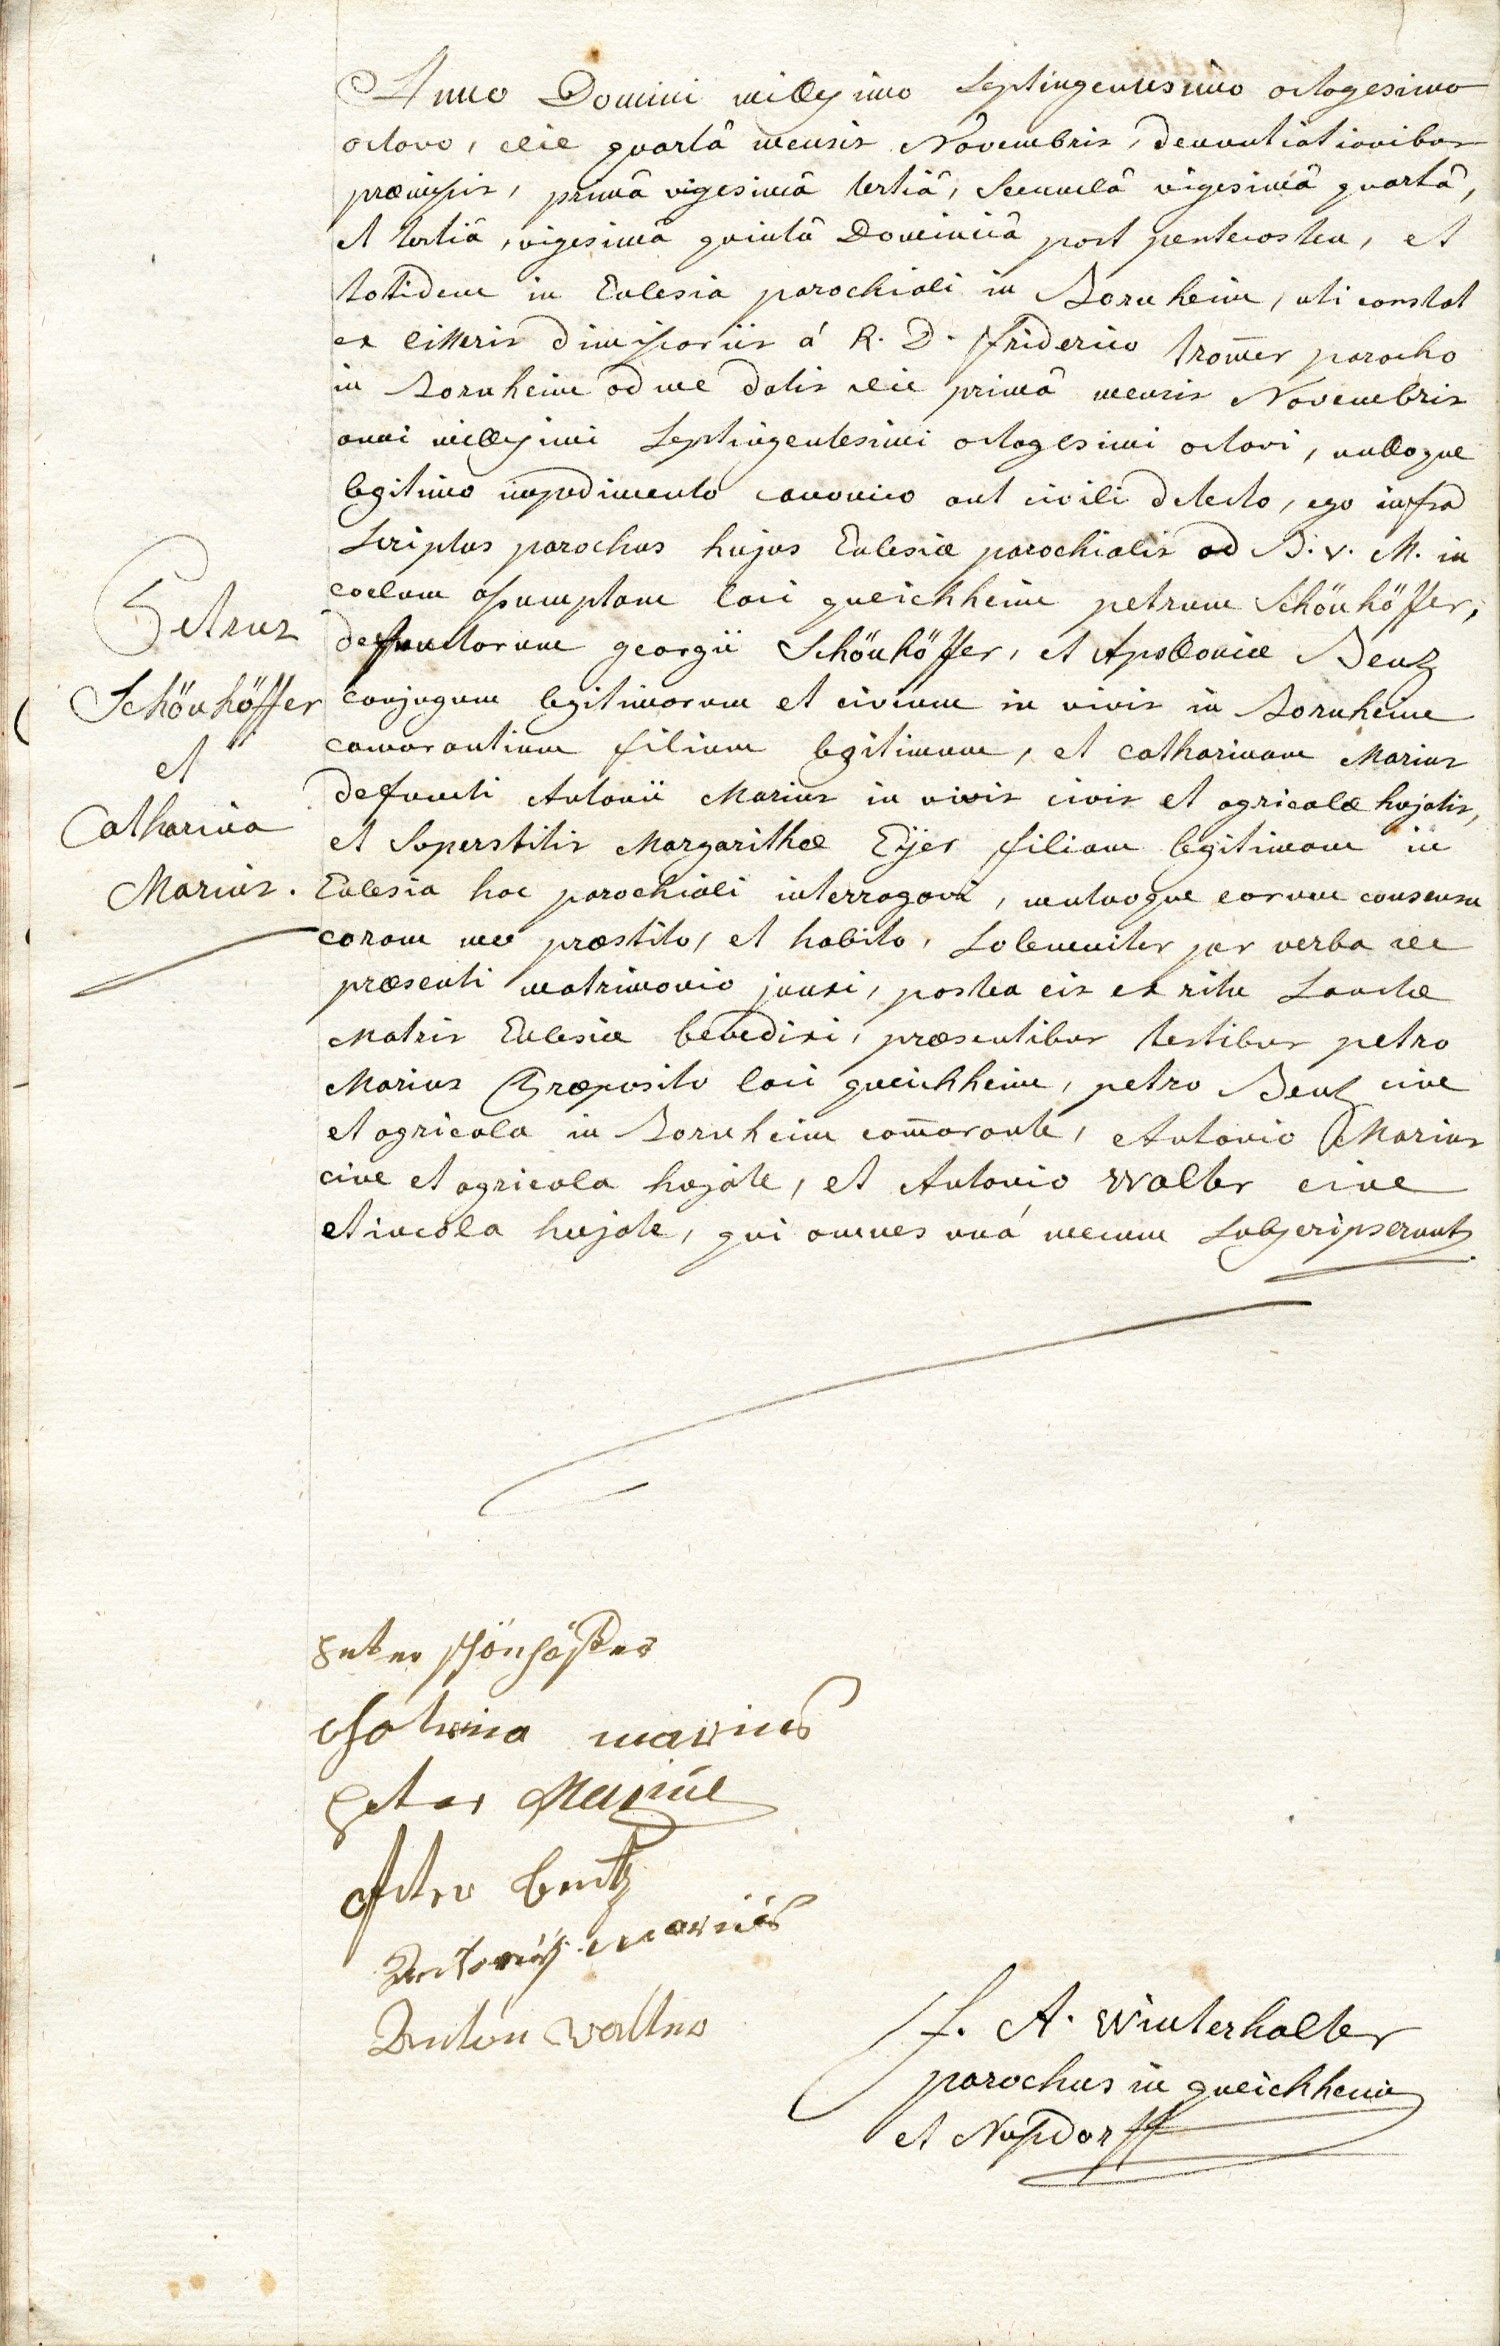 Anno Domini millesimo Septingentesimo octogesimo
octavo, die quartâ mensis Novembris, denuntiationibus
præmissis, primâ vigesimâ tertiâ, Secundâ vigesimâ quartâ,
et tertiâ, vigesimâ quintâ Dominicâ post pentecosten, et
totidem in Ecclesia parochiali in Bornheim, uti constat
ex litteris dimissoriis á R. D. Friderico trom̄er parocho
in Bornheim ad me datis die primâ mensis Novembris
anni millesimi Septingentesimi octogesimi octavi, nulloque
legitimo impedimento canonico aut civili detecto, ego infra
Scriptus parochus hujus Ecclesiæ parochialis ad B. v. M. in
coelum assumptam loci queichheim petrum Schönhöffer,
Petrus
defunctorum georgii Schönhöffer, et Apolloniæ Bentz
Schönhöffer
conjugum legitimorum et civium in vivis in Bornheim
et
comorantium filium legitimum, et catharinam Marius
Catharina
defuncti Antonii Marius in vivis civis et agricolæ hujatis,
et Superstitis Margarithæ Eÿer filiam legitimam in
Marius.
Ecclesia hac parochiali interrogavi, mutuoque eorum consensu
coram me præstito, et habito, Solemniter per verba de
præsenti matrimonio junxi, postea eis ex ritu Sanctæ
Matris Ecclesiæ benedixi, præsentibus testibus petro
Marius Præposito loci queichheim, petro Bentz cive
et agricola in Bornheim com̄orante, Antonio Marius
cive et agricola hujate, et Antonio Walter cive
et incola hujate, qui omnes unà mecum Subscripserunt
Peter schönhöffer
Chatrina marius
Peter Marius
Peter Bentz
Antonÿ marius
Anton Walter
f. A. Winterhalter
parochus in queichheim
et Nussdorff